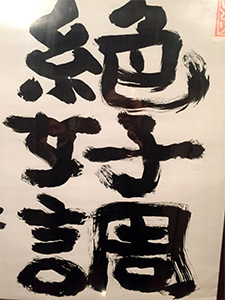 絶好調